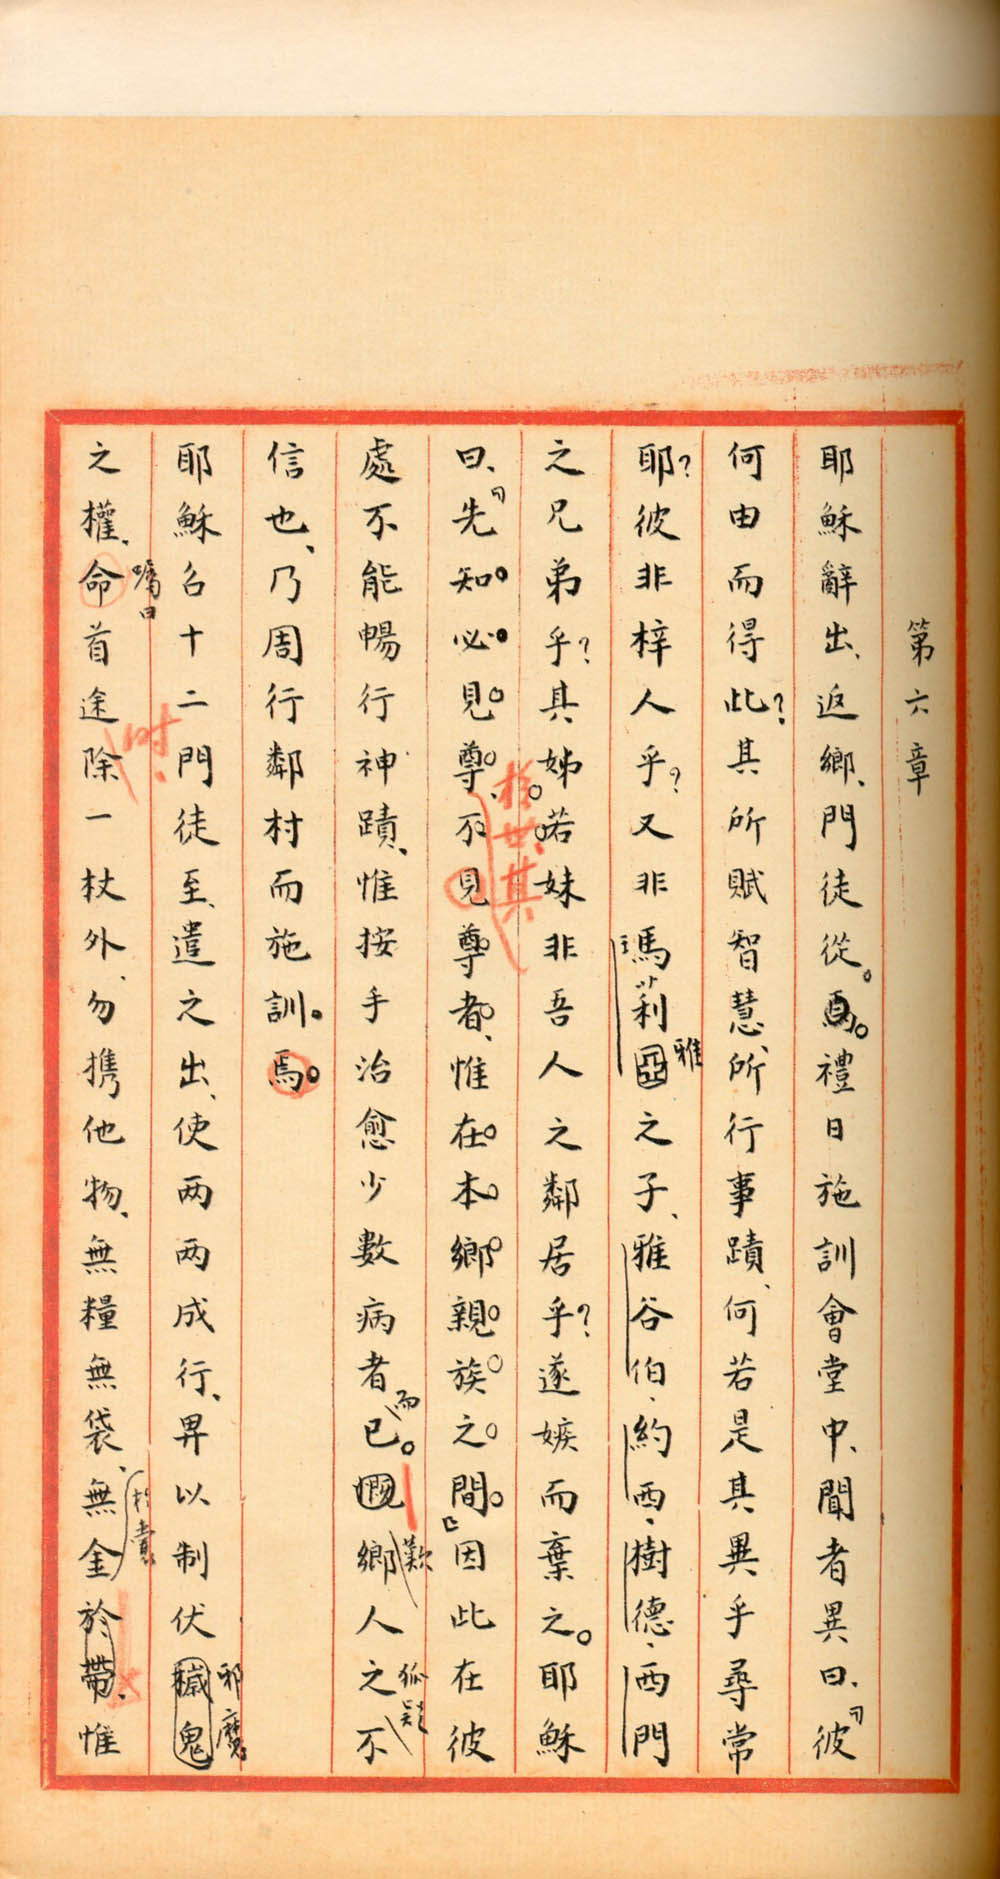 第六章
耶穌辭出、返鄉、門徒從。禮日施訓會堂中、聞者異曰、彼
何由而得此？其所賦智慧、所行事蹟、何若是其異乎尋常
耶？彼非梓人乎？又非瑪莉亞雅之子、雅谷伯、約西、樹德、西門
之兄弟乎？其姊若妹非吾人之鄰居乎？遂嫉而棄之。耶穌
曰、先知必見尊、不見尊者、惟在本鄉親族之間。因此在彼
處不能暢行神蹟、惟按手治愈少數病者而已。鄉歎人之狐疑不
信也、乃周行鄰村而施訓。焉。
耶穌召十二門徒至、遣之出、使两两成行、畀以制伏穢鬼邪魔
之權、命囑曰首途時、除一杖外、勿攜他物、無糧無袋、無金於帶、惟